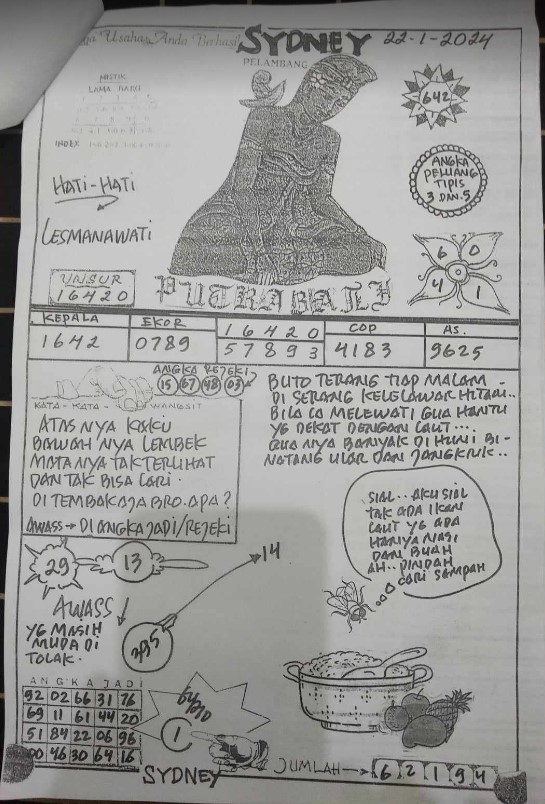 Usaha Anda Berhasil SYDNEY 22-1-2024
PELAMBANG
MISTIK
LAMA BARU
INDEX
642
HATI-HATI
LESMANAWATI
ANGKA
PELUANG
TIPIS
3 DAN 5
6 0
4 1
UNSUR
16420
PUTRA BALI
KEPALA EKOR 16420 COP AS.
1642 0789 57893 4183 9625
ANGKA REJEKI
15 67 48 03
KATA-KATA WANGSIT
ATAS NYA KAKU
BAWAH NYA LEMBEK
MATA NYA TAK TERLIHAT
DAN TAK BISA LARI.
DI TEMBAK AJA BRO. APA?
AWASS → DI ANGKA JADI/REJEKI
BUTO TERANG TIAP MALAM -
DI SERANG KELELAWAR HITAM..
BILA CA MELEWATI GUA HANTU
YG DEKAT DENGAN LAUT...
GUA NYA BANYAK DI HUNI BI-
NATANG ULAR DAN JANGKRIK..
SIAL.. AKU SIAL
TAK ADA IKAN
LAUT YG ADA
HANYA NASI
DAN BUAH
AH.. PINDAH
CARI SAMPAH
29 13
14
AWASS
YG MASIH
MUDA DI
TOLAK.
ANGKA JADI
92 02 66 31 76
69 11 61 44 20
51 84 22 06 96
00 46 30 64 16
1
SYDNEY
JUMLAH → 6 2 1 9 4